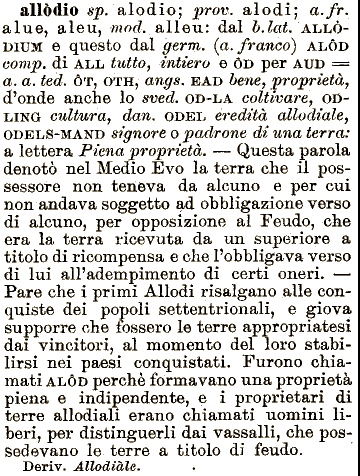 allòdio sp. alodio; prov. alodi; a. fr.
alue, aleu, mod. alleu: dal b. lat. ALLÒ-
DIUM e questo dal germ. (a. franco) ALÔD
comp. di ALL tutto, intiero e ÔD per AUD =
a. a. ted. ÔT, OTH, angs. EAD bene, proprietà,
d'onde anche lo sved. OD-LA coltivare, OD-
LING cultura, dan. ODEL eredità allodiale,
ODELS-MAND signore o padrone di una terra:
a lettera Piena proprietà. — Questa parola
denotò nel Medio Evo la terra che il pos-
sessore non teneva da alcuno e per cui
non andava soggetto ad obbligazione verso
di alcuno, per opposizione al Feudo, che
era la terra ricevuta da un superiore a
titolo di ricompensa e che l'obbligava verso
di lui all'adempimento di certi oneri. —
Pare che i primi Allodi risalgano alle con-
quiste dei popoli settentrionali, e giova
supporre che fossero le terre appropriatesi
dai vincitori, al momento del loro stabi-
lirsi nei paesi conquistati. Furono chia-
mati ALÔD perchè formavano una proprietà
piena e indipendente, e i proprietari di
terre allodiali erano chiamati uomini li-
beri, per distinguerli dai vassalli, che pos-
sedevano le terre a titolo di feudo.
Deriv. Allodiàle.